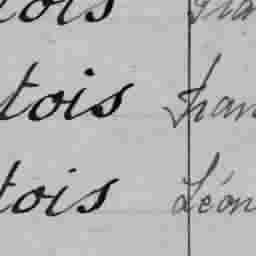 tois
tois Fran
tois Léon